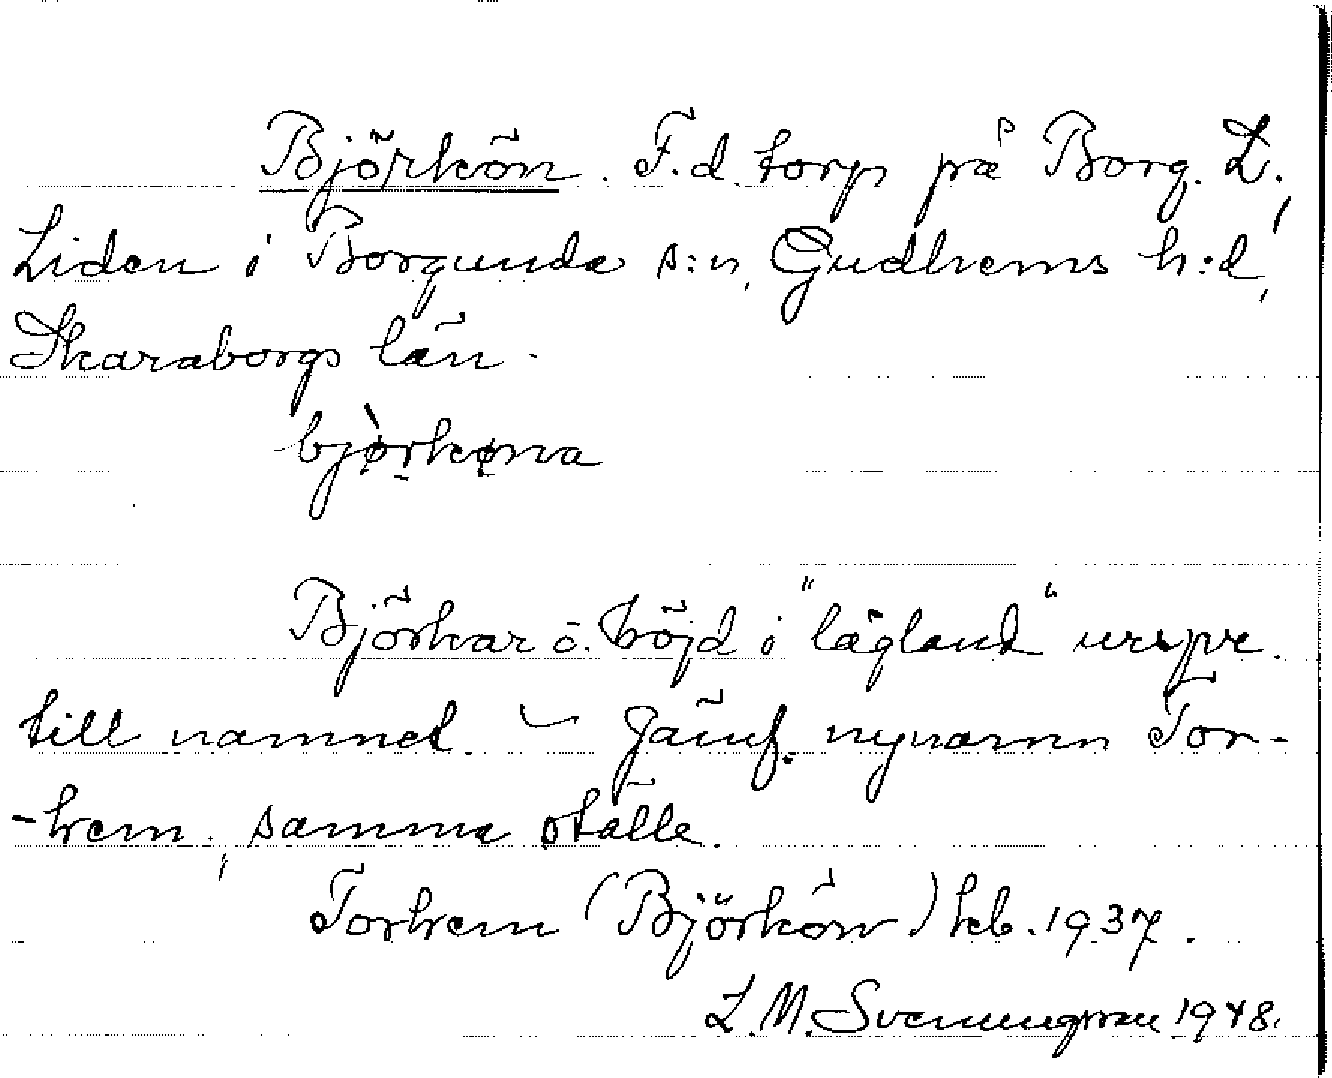 Björkön. F.d. torp på Borg. L.,
Liden i Borgunda s:n, Gudhems h:d,
Skaraborgs län.
bjòrkøna
Björkar å höjd i "lågland" urspr.
till namnet. – Jämf. nynamn Tor-
-hem, samma ställe.
Torhem (Björkön) kb. 1937.
L. M. Svenungsson 1948.